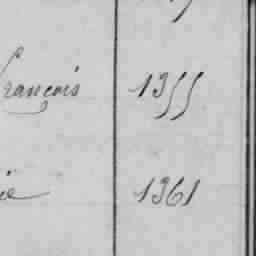 françois 1355
1361